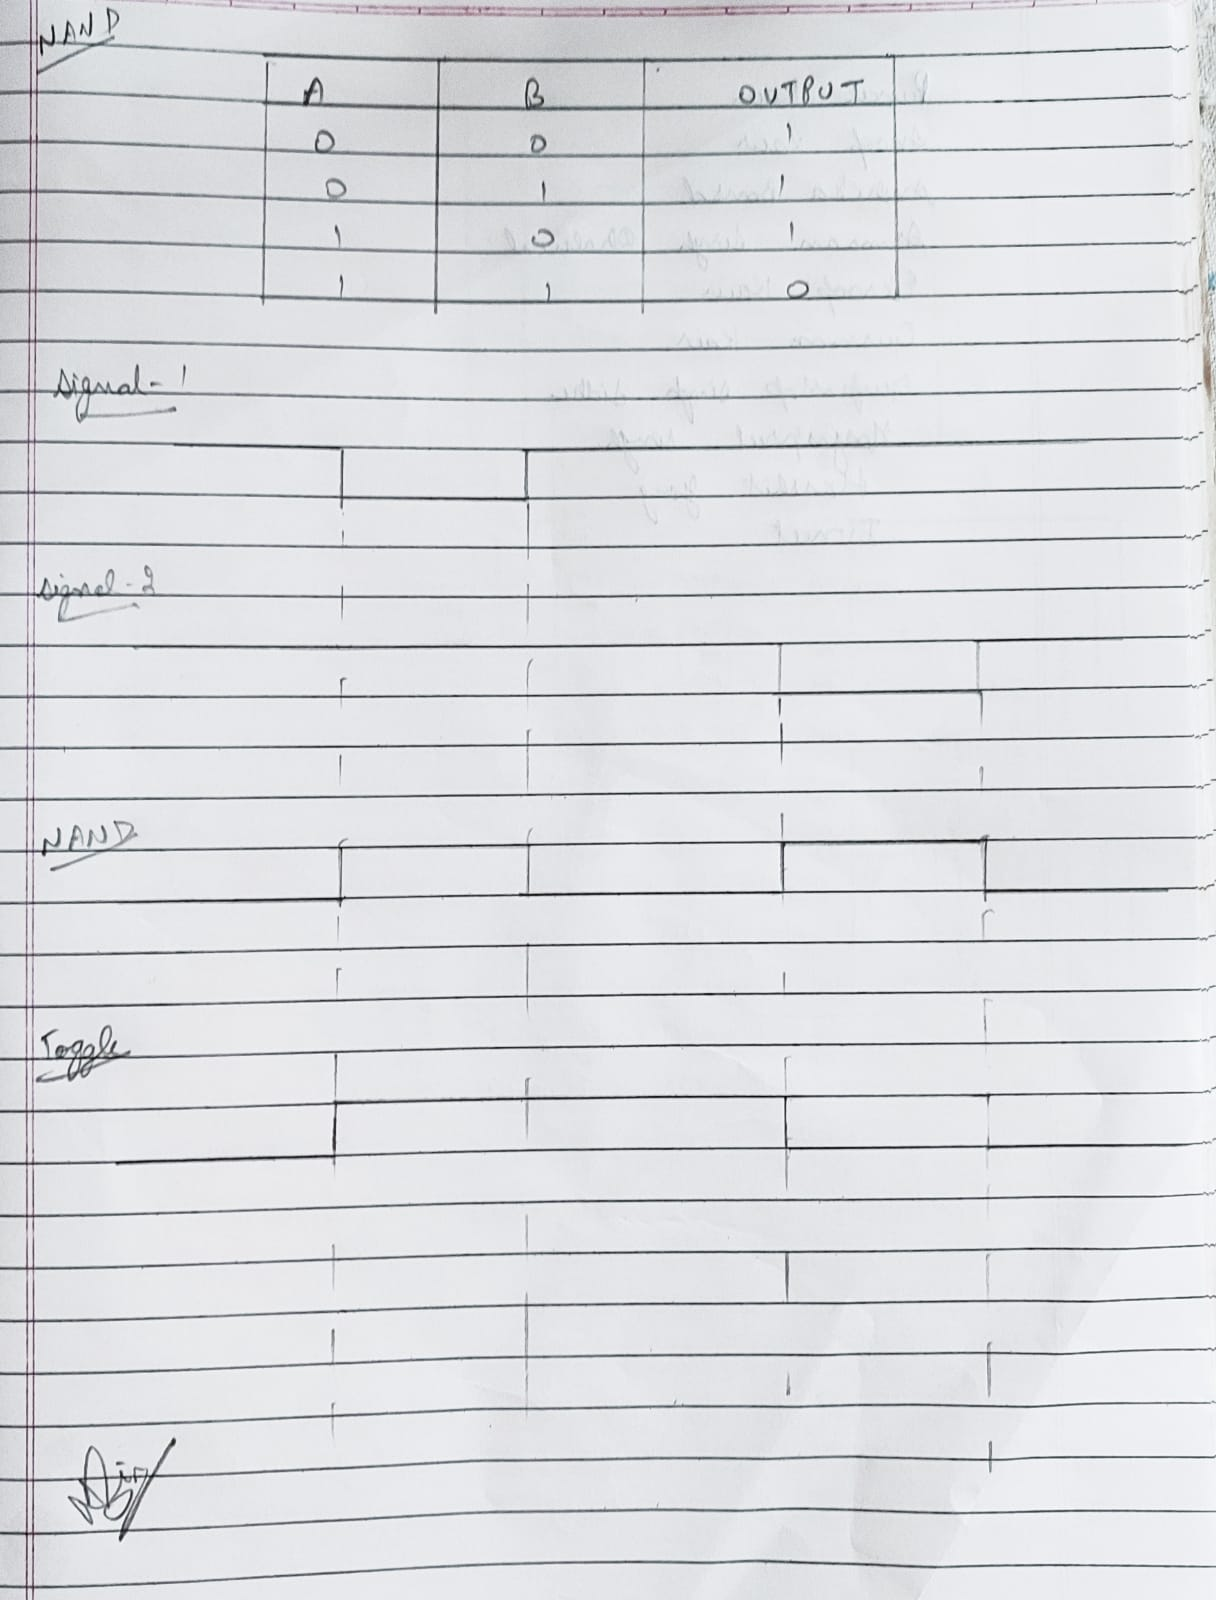 NAND
A B OUTPUT
0 0 1
0 1 1
1 0 1
1 1 0
Signal-1
Signal-2
NAND
Toggle